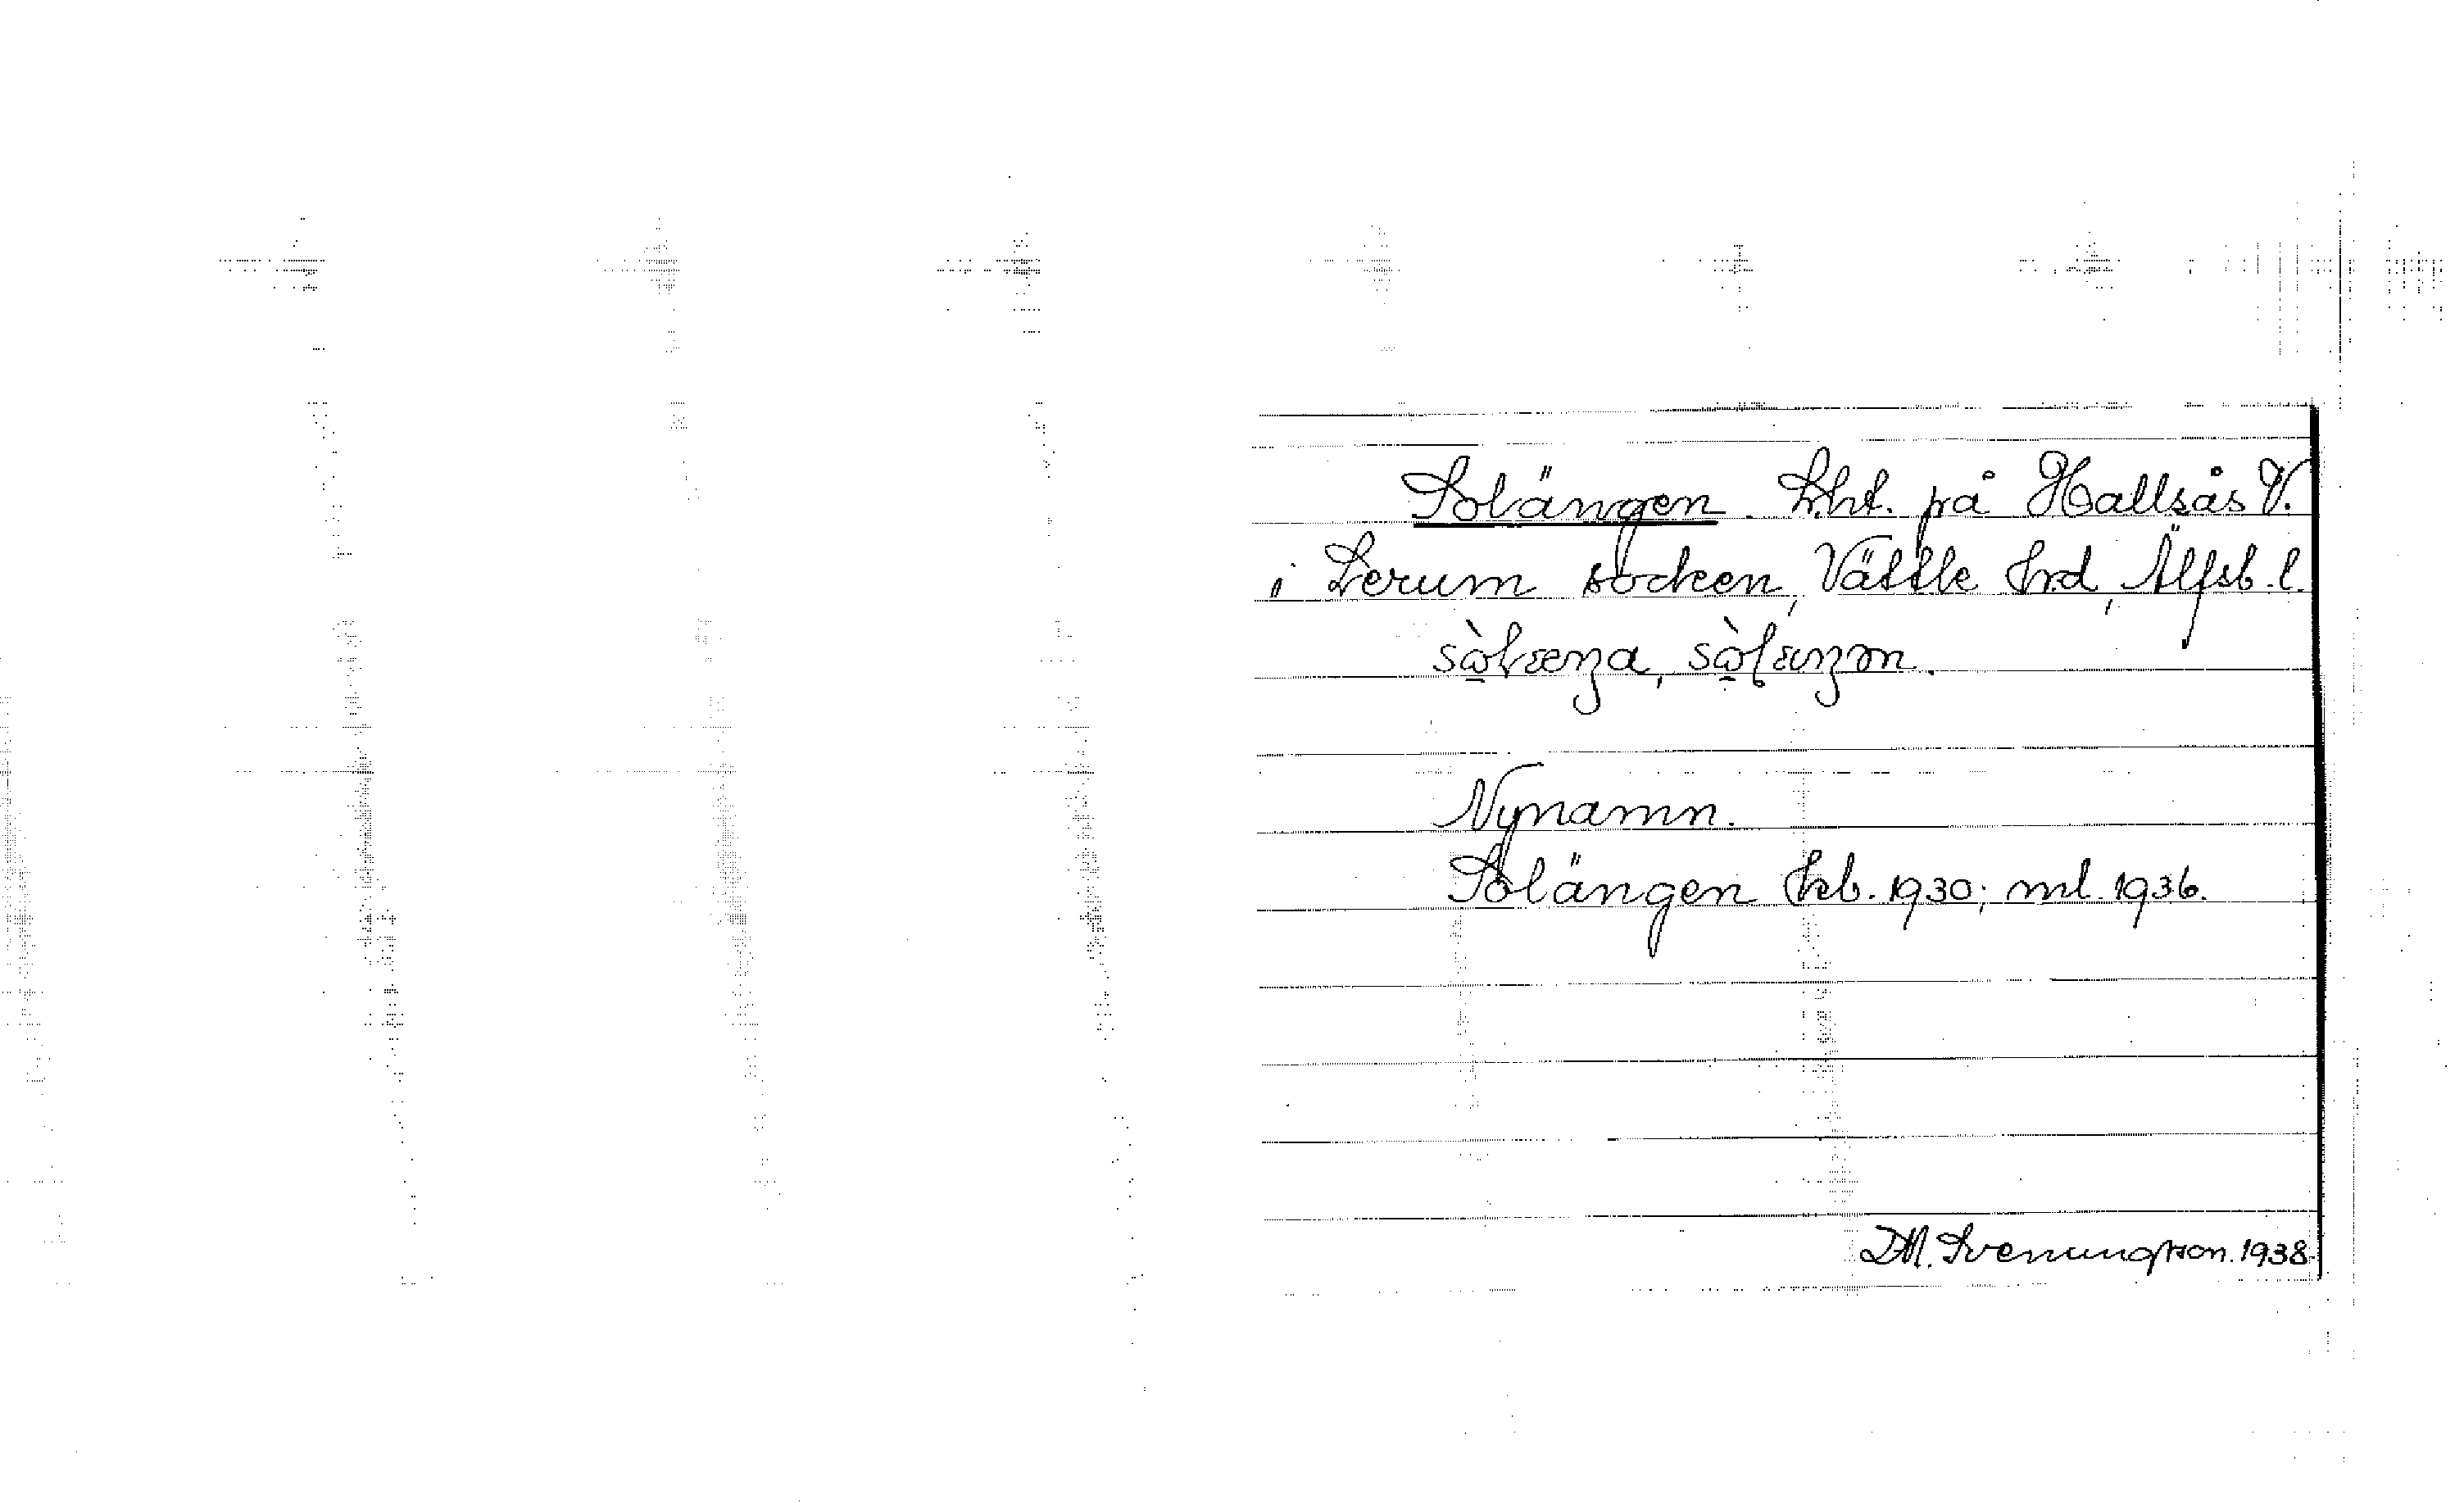 Solängen. Lht. på Hallsås V.
i Lerum socken, Vättle hrd, Älfsb. l.
Nynamn.
Solängen Jrb. 1930; ml. 1936.
D.M. Svenungsson. 1938.